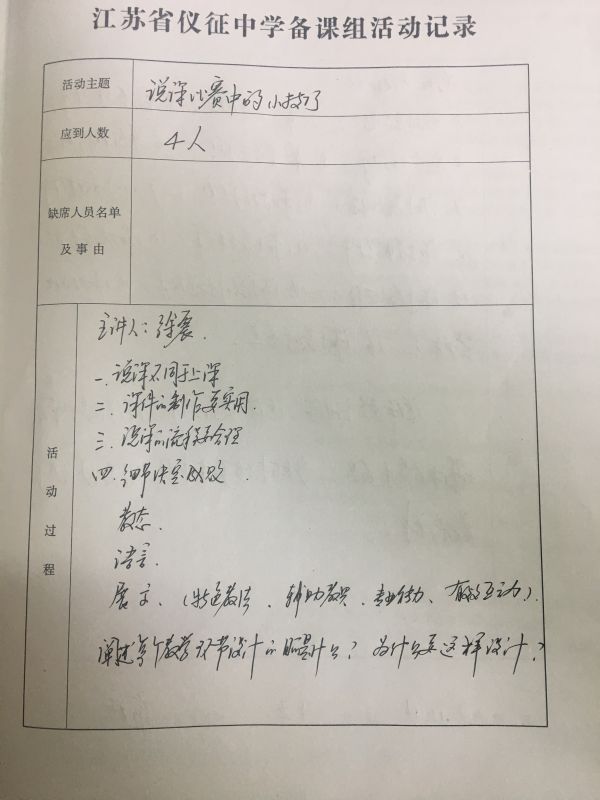 江苏省仪征中学备课组活动记录
活动主题 说课比赛中的小技巧
应到人数 4人
缺席人员名单
及事由
活动过程
主讲人：徐震.
一.说课不同于上课
二.课件的制作要实用.
三.说课的流程要合理
四.细节决定成败.
教态.
语言.
展示.(特色教法、辅助教具、有效互动).
阐述每个教学环节设计的 是什么？为什么要这样设计？